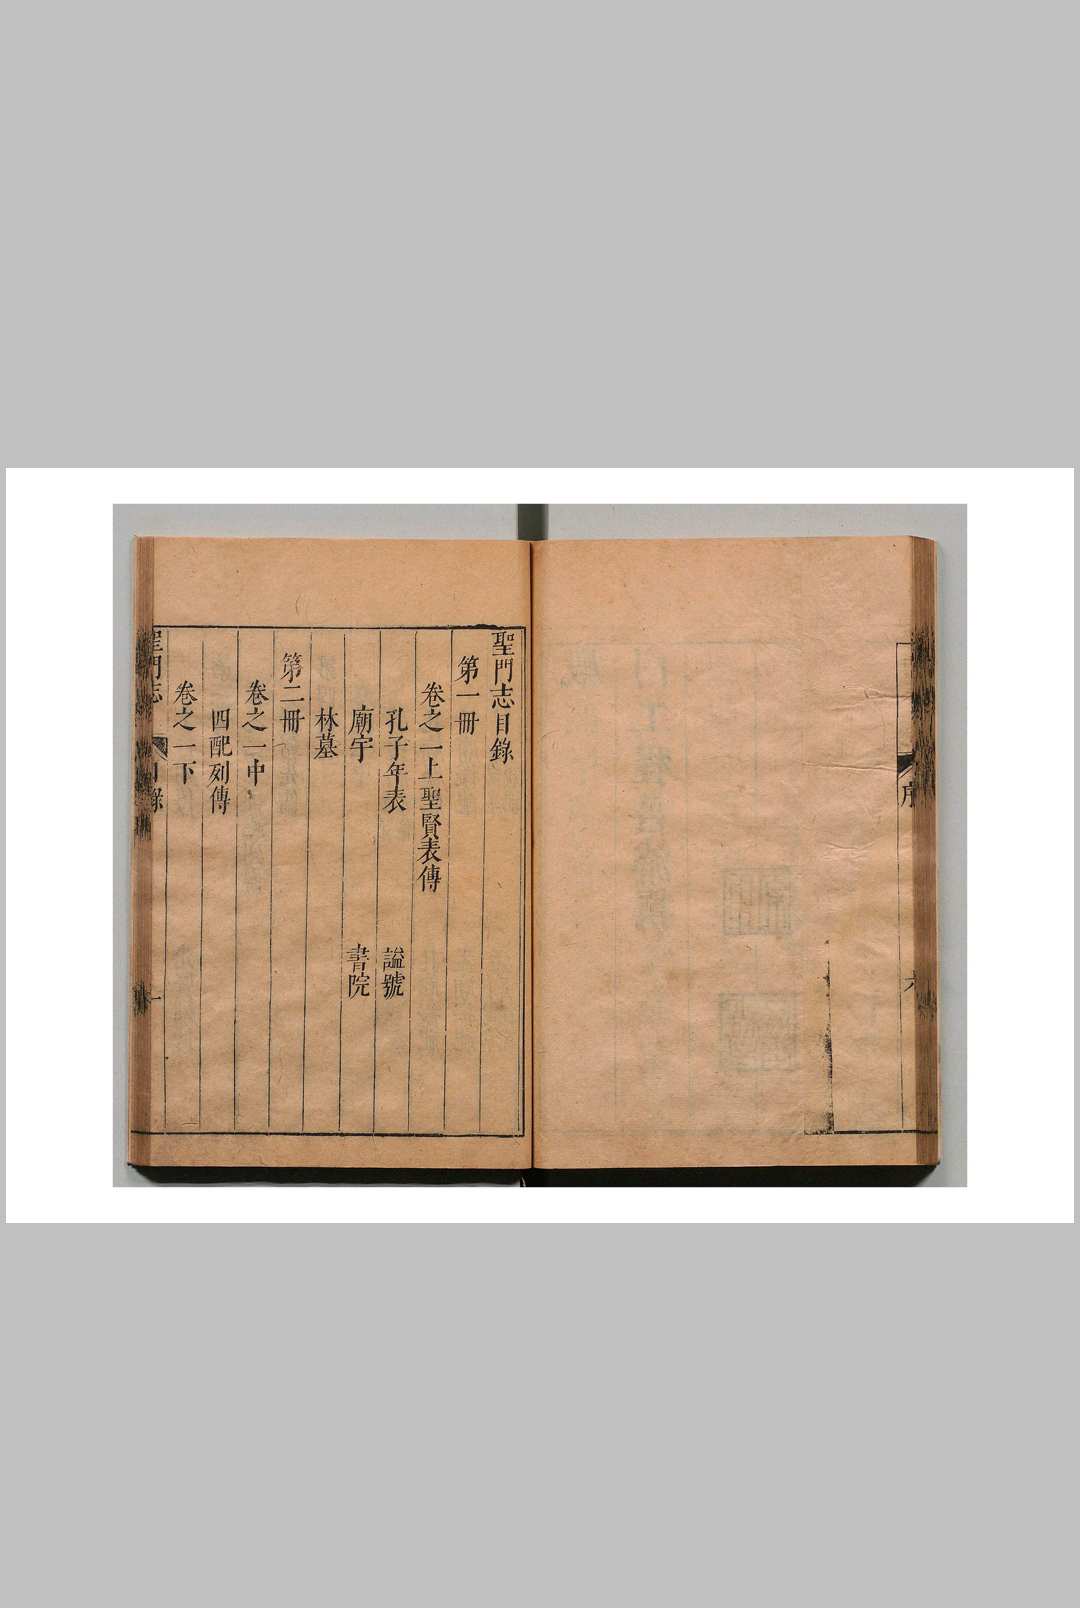 序
六
聖門志目錄
第一冊
卷之一上聖賢表傳
孔子年表 謚號
廟宇 書院
林墓
第二冊
卷之一中
四配列傳
卷之一下
聖門志 目錄 一